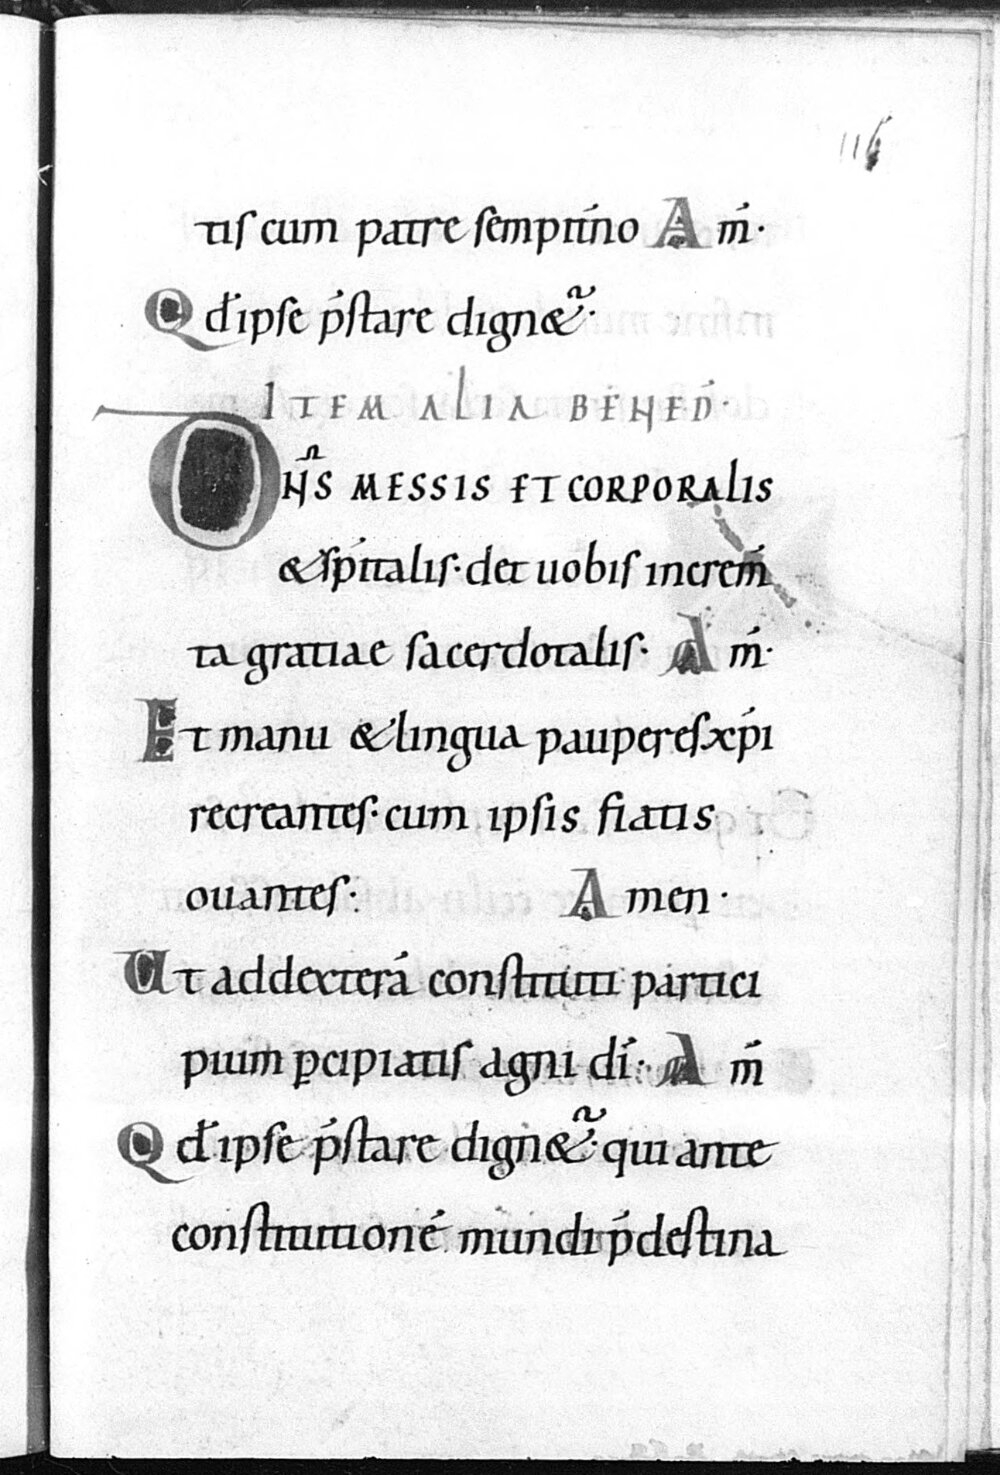 116
tis cum patre sempit̄no Am̄·
Qđ ipse p̄stare dignet̄·
ITEM ALIA BENED̄·
DN̄S MESSIS ET CORPORALIS
& sp̄italis· det uobis increm̄
ta gratiae sacerdotalis· Am̄·
Et manu & lingua pauperes xp̄i
recreantes· cum ipsis fiatis
ouantes· Amen·
Ut ad dexterā constituti partici
pium p̄cipiatis agni dī· Am̄
Qđ ipse p̄stare dignet̄· qui ante
constitutionē mundi p̄destina